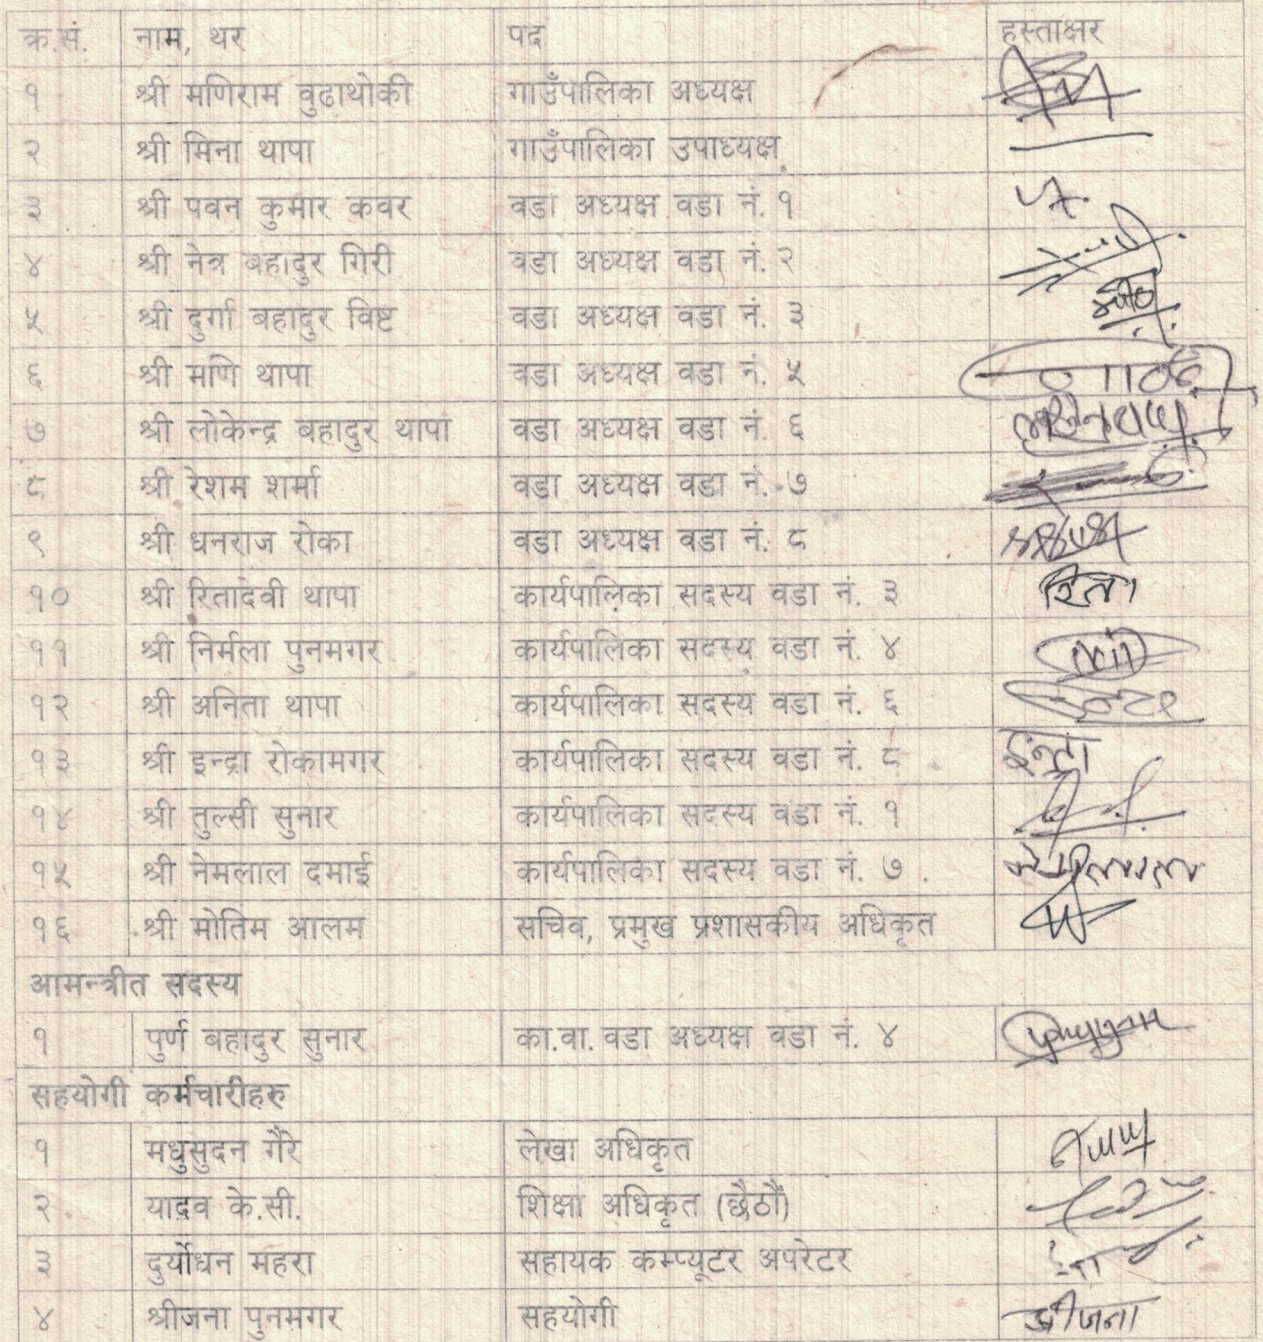 क्र.सं. नाम, थर पद हस्ताक्षर
१ श्री मणिराम वुढाथोकी गाउँपालिका अध्यक्ष
२ श्री मिना थापा गाउँपालिका उपाध्यक्ष
३ श्री पवन कुमार कवर वडा अध्यक्ष वडा नं. १
४ श्री नेत्र बहादुर गिरी वडा अध्यक्ष वडा नं. २
५ श्री दुर्गा बहादुर विष्ट वडा अध्यक्ष वडा नं. ३
६ श्री मणि थापा वडा अध्यक्ष वडा नं. ५
७ श्री लोकेन्द्र बहादुर थापा वडा अध्यक्ष वडा नं. ६
८ श्री रेशम शर्मा वडा अध्यक्ष वडा नं. ७
९ श्री धनराज रोका वडा अध्यक्ष वडा नं. ८
१० श्री रितादेवी थापा कार्यपालिका सदस्य वडा नं. ३ रिता
११ श्री निर्मला पुनमगर कार्यपालिका सदस्य वडा नं. ४
१२ श्री अनिता थापा कार्यपालिका सदस्य वडा नं. ६
१३ श्री इन्द्रा रोकामगर कार्यपालिका सदस्य वडा नं. ८ इन्द्रा
१४ श्री तुल्सी सुनार कार्यपालिका सदस्य वडा नं. १
१५ श्री नेमलाल दमाई कार्यपालिका सदस्य वडा नं. ७
१६ श्री मोतिम आलम सचिव, प्रमुख प्रशासकीय अधिकृत
आमन्त्रीत सदस्य
१ पुर्ण बहादुर सुनार का.वा. वडा अध्यक्ष वडा नं. ४
सहयोगी कर्मचारीहरु
१ मधुसुदन गैरे लेखा अधिकृत
२ यादव के.सी. शिक्षा अधिकृत (छैठौं)
३ दुर्योधन महरा सहायक कम्प्यूटर अपरेटर
४ श्रीजना पुनमगर सहयोगी श्रीजना